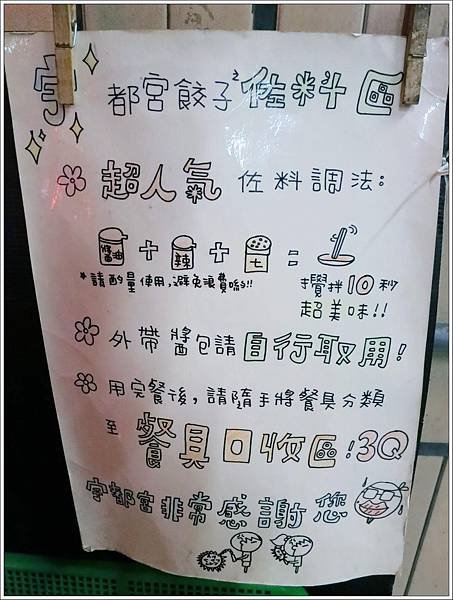 宇都宮餃子佐料區
超人氣佐料調法:
醬油+辣+七=
*請酌量使用,避免浪費喲!!
攪拌10秒
超美味!!
外帶醬包請自行取用!
用完餐後,請隨手將餐具分類
至餐具回收區!3Q
宇都宮非常感謝您